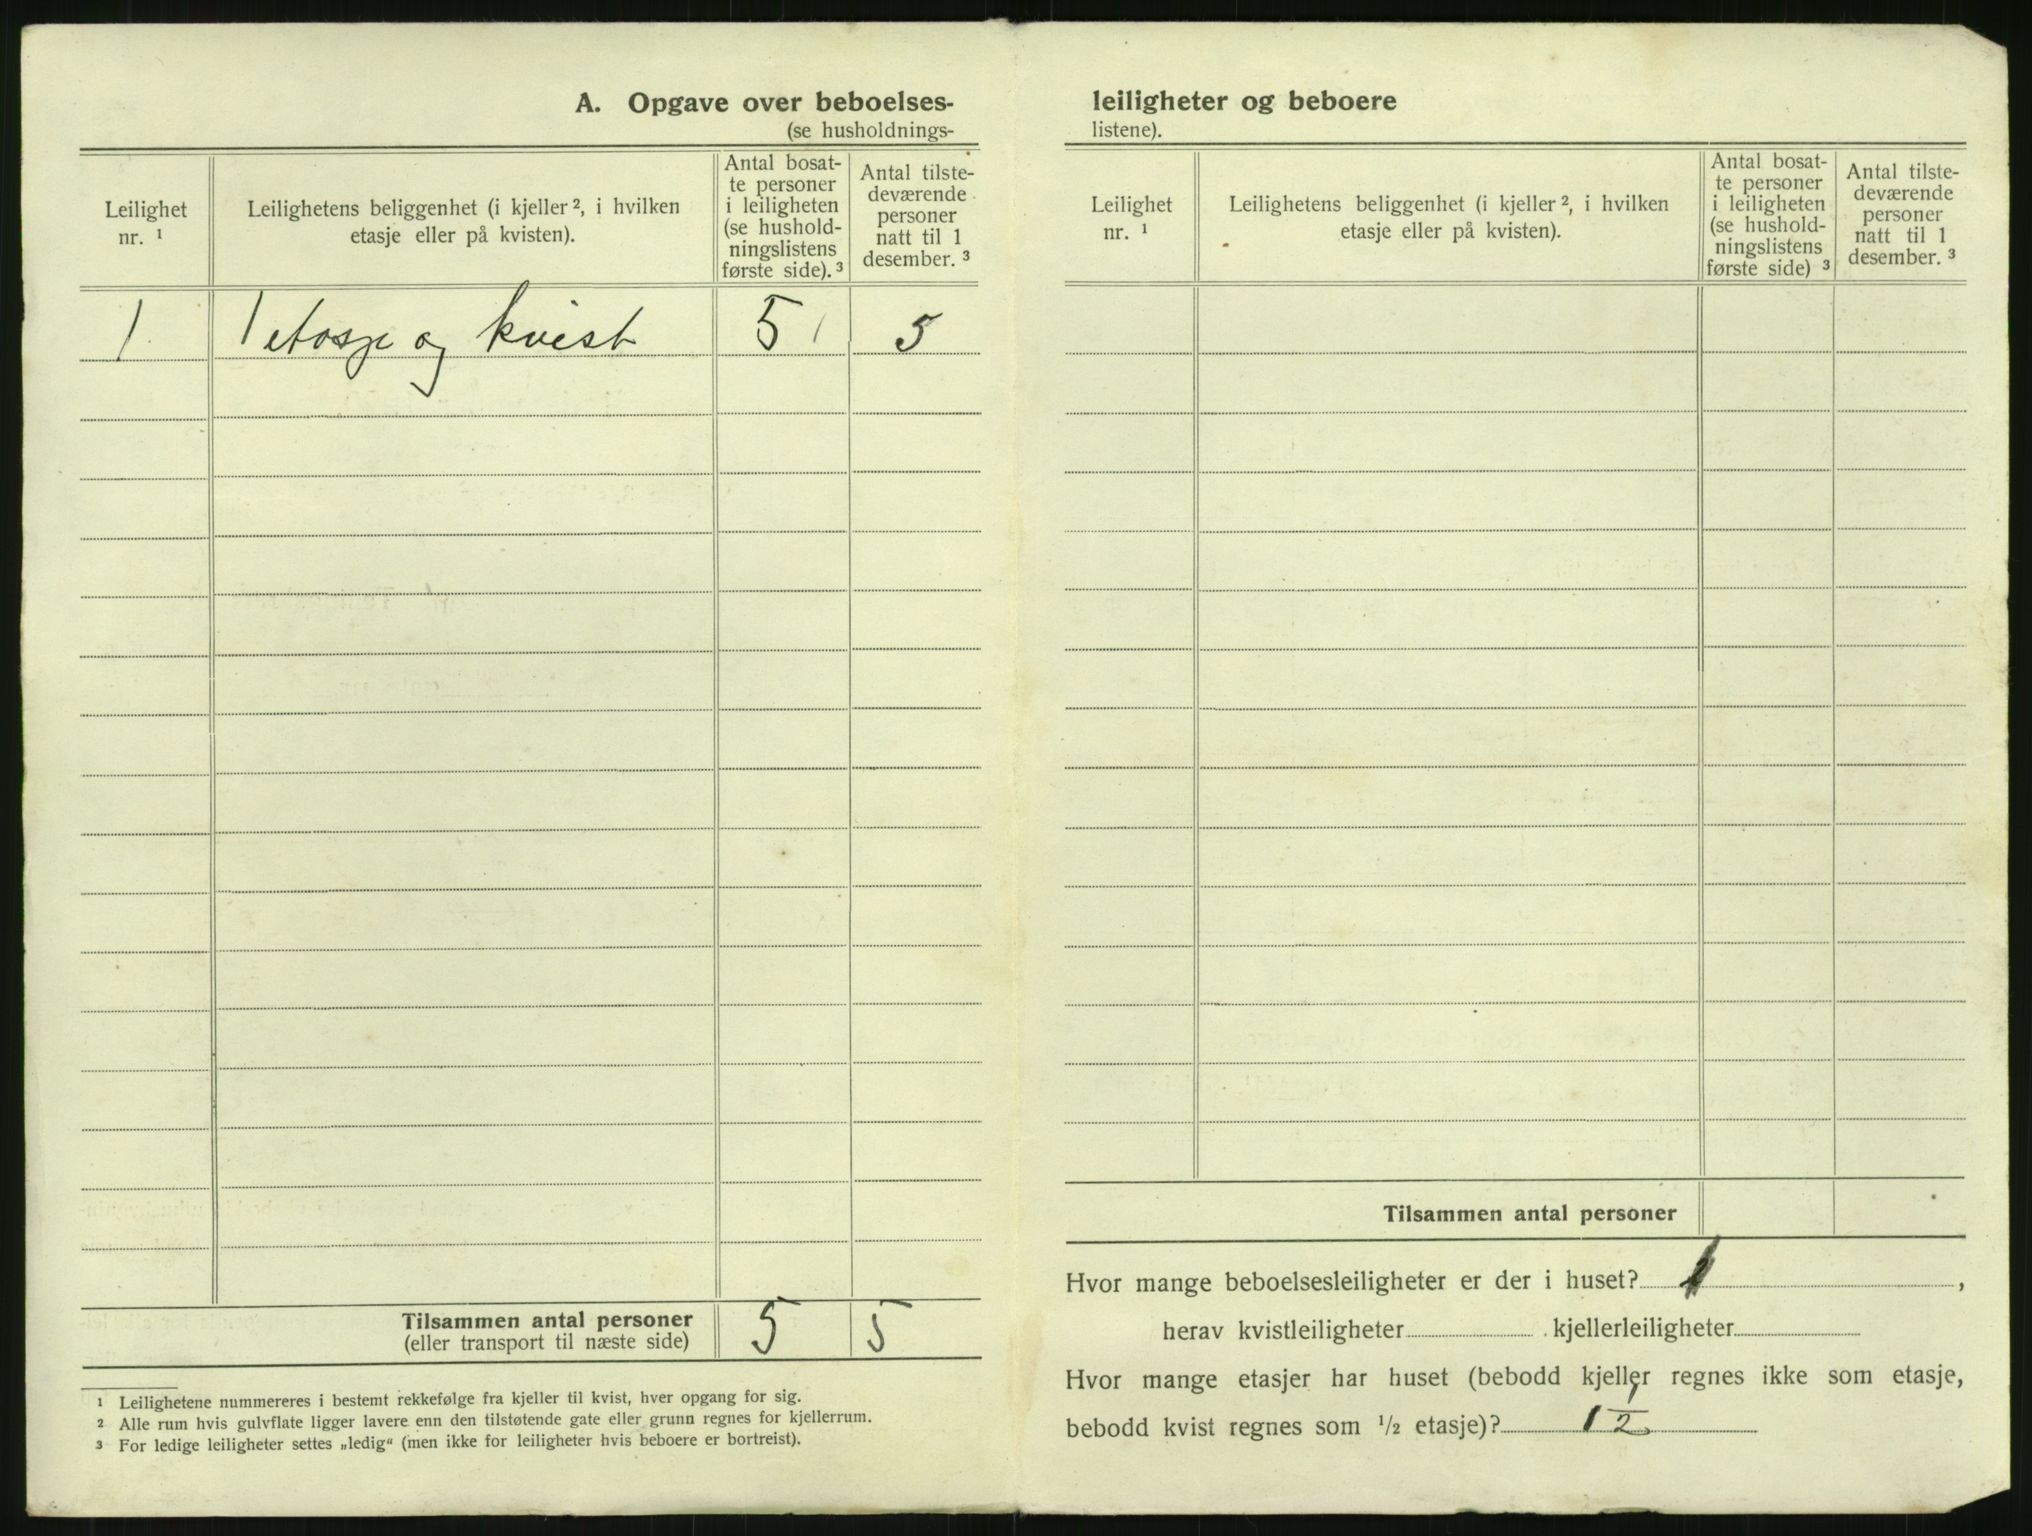 A. Opgave over beboelses-
(se husholdnings-
Leilighet
nr. ¹
Leilighetens beliggenhet (i kjeller ², i hvilken
etasje eller på kvisten).
Antal bosat-
te personer
i leiligheten
(se hushold-
ningslistens
første side). ³
Antal tilste-
deværende
personer
natt til 1
desember. ³
1 1 etasje og kvist 5 5
Tilsammen antal personer 5 5
(eller transport til næste side)
¹ Leilighetene nummereres i bestemt rekkefølge fra kjeller til kvist, hver opgang for sig.
² Alle rum hvis gulvflate ligger lavere enn den tilstøtende gate eller grunn regnes for kjellerrum.
³ For ledige leiligheter settes „ledig“ (men ikke for leiligheter hvis beboere er bortreist).
leiligheter og beboere
listene).
Leilighet
nr. ¹
Leilighetens beliggenhet (i kjeller ², i hvilken
etasje eller på kvisten).
Antal bosat-
te personer
i leiligheten
(se hushold-
ningslistens
første side) ³
Antal tilste-
deværende
personer
natt til 1
desember. ³
Tilsammen antal personer
Hvor mange beboelsesleiligheter er der i huset? 1,
herav kvistleiligheter kjellerleiligheter
Hvor mange etasjer har huset (bebodd kjeller regnes ikke som etasje,
bebodd kvist regnes som ½ etasje)? 1 ½